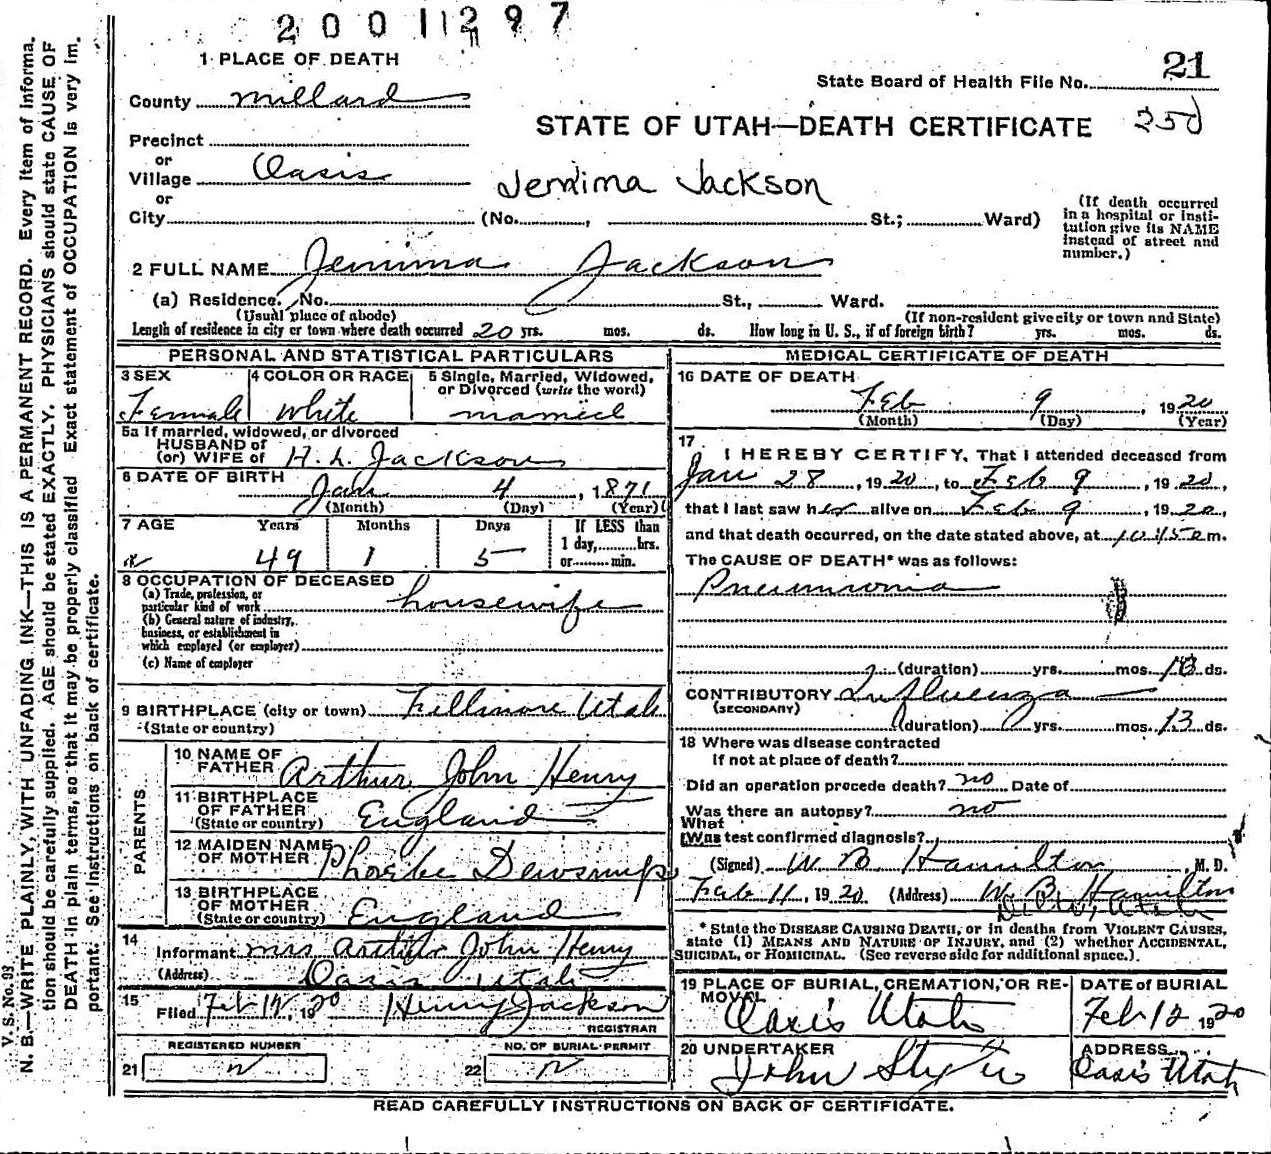 2001297
1 PLACE OF DEATH
21
State Board of Health File No.
County Millard
STATE OF UTAH—DEATH CERTIFICATE
250
Precinct
or
Village Oasis
Jemima Jackson
or
City (No. , St.; Ward)
(If death occurred in a hospital or institution give its NAME instead of street and number.)
2 FULL NAME Jemima Jackson
(a) Residence. No. St., Ward.
(Usual place of abode) (If non-resident give city or town and State)
Length of residence in city or town where death occurred 20 yrs. mos. ds. How long in U. S., if of foreign birth? yrs. mos. ds.
PERSONAL AND STATISTICAL PARTICULARS
3 SEX 4 COLOR OR RACE 5 Single, Married, Widowed, or Divorced (write the word)
Female White married
5a If married, widowed, or divorced
HUSBAND of
(or) WIFE of H. L. Jackson
6 DATE OF BIRTH
Jan 4, 1871
(Month) (Day) (Year)
7 AGE Years Months Days If LESS than
1 day, hrs.
49 1 5 or min.
8 OCCUPATION OF DECEASED
(a) Trade, profession, or
particular kind of work housewife
(b) General nature of industry,
business, or establishment in
which employed (or employer)
(c) Name of employer
9 BIRTHPLACE (city or town) Fillmore Utah
(State or country)
PARENTS
10 NAME OF
FATHER Arthur John Henry
11 BIRTHPLACE
OF FATHER England
(State or country)
12 MAIDEN NAME
OF MOTHER Phoebe Dewsnup
13 BIRTHPLACE
OF MOTHER England
(State or country)
14
Informant Mrs Arthur John Henry
(Address) Oasis Utah
15
Filed Feb 14, 1920 Henry Jackson
REGISTRAR
REGISTERED NUMBER NO. OF BURIAL PERMIT
21 22
MEDICAL CERTIFICATE OF DEATH
16 DATE OF DEATH
Feb 9, 1920
(Month) (Day) (Year)
17
I HEREBY CERTIFY, That I attended deceased from
Jan 28, 1920, to Feb 9, 1920,
that I last saw her alive on Feb 9, 1920,
and that death occurred, on the date stated above, at 10:45 a m.
The CAUSE OF DEATH* was as follows:
Pneumonia
(duration) yrs. mos. ds.
CONTRIBUTORY Influenza
(SECONDARY)
(duration) yrs. mos. 13 ds.
18 Where was disease contracted
If not at place of death?
Did an operation precede death? no Date of
Was there an autopsy? no
What
Was test confirmed diagnosis?
(Signed) W. B. Hamilton, M. D.
Feb 11, 1920 (Address) W. B. Hamilton
Utah
* State the DISEASE CAUSING DEATH, or in deaths from VIOLENT CAUSES,
state (1) MEANS AND NATURE OF INJURY, and (2) whether ACCIDENTAL,
SUICIDAL, or HOMICIDAL. (See reverse side for additional space.)
19 PLACE OF BURIAL, CREMATION, OR REMOVAL DATE of BURIAL
Oasis Utah Feb 12 1920
20 UNDERTAKER ADDRESS
John Oasis Utah
READ CAREFULLY INSTRUCTIONS ON BACK OF CERTIFICATE.
V. S. No. 93
N. B.—WRITE PLAINLY, WITH UNFADING INK—THIS IS A PERMANENT RECORD. Every item of informa-
tion should be carefully supplied. AGE should be stated EXACTLY. PHYSICIANS should state CAUSE OF
DEATH in plain terms, so that it may be properly classified. Exact statement of OCCUPATION is very im-
portant. See instructions on back of certificate.